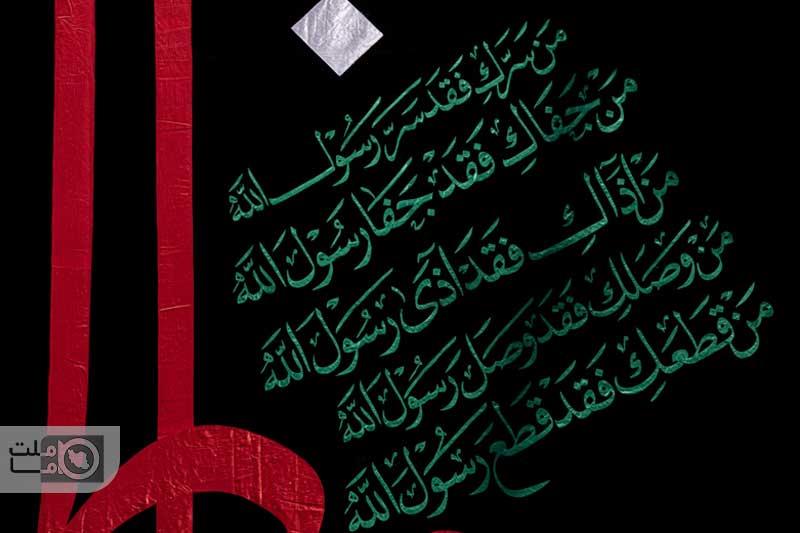 مَن سَرَّكِ فَقَد سَرَّ رَسُولَ اللَّهُ
مَن جَفَاكِ فَقَد جَفَا رَسُوْلَ اللَّهُ
مَن اذَاكِ فَقَد اذَى رَسُوْلَ اللَّهُ
مَن وَصَلَكِ فَقَد وَصَلَ رَسُوْلَ اللَّهُ
مَن قَطَعَكِ فَقَد قَطَعَ رَسُوْلَ اللَّهُ
ملت
ما